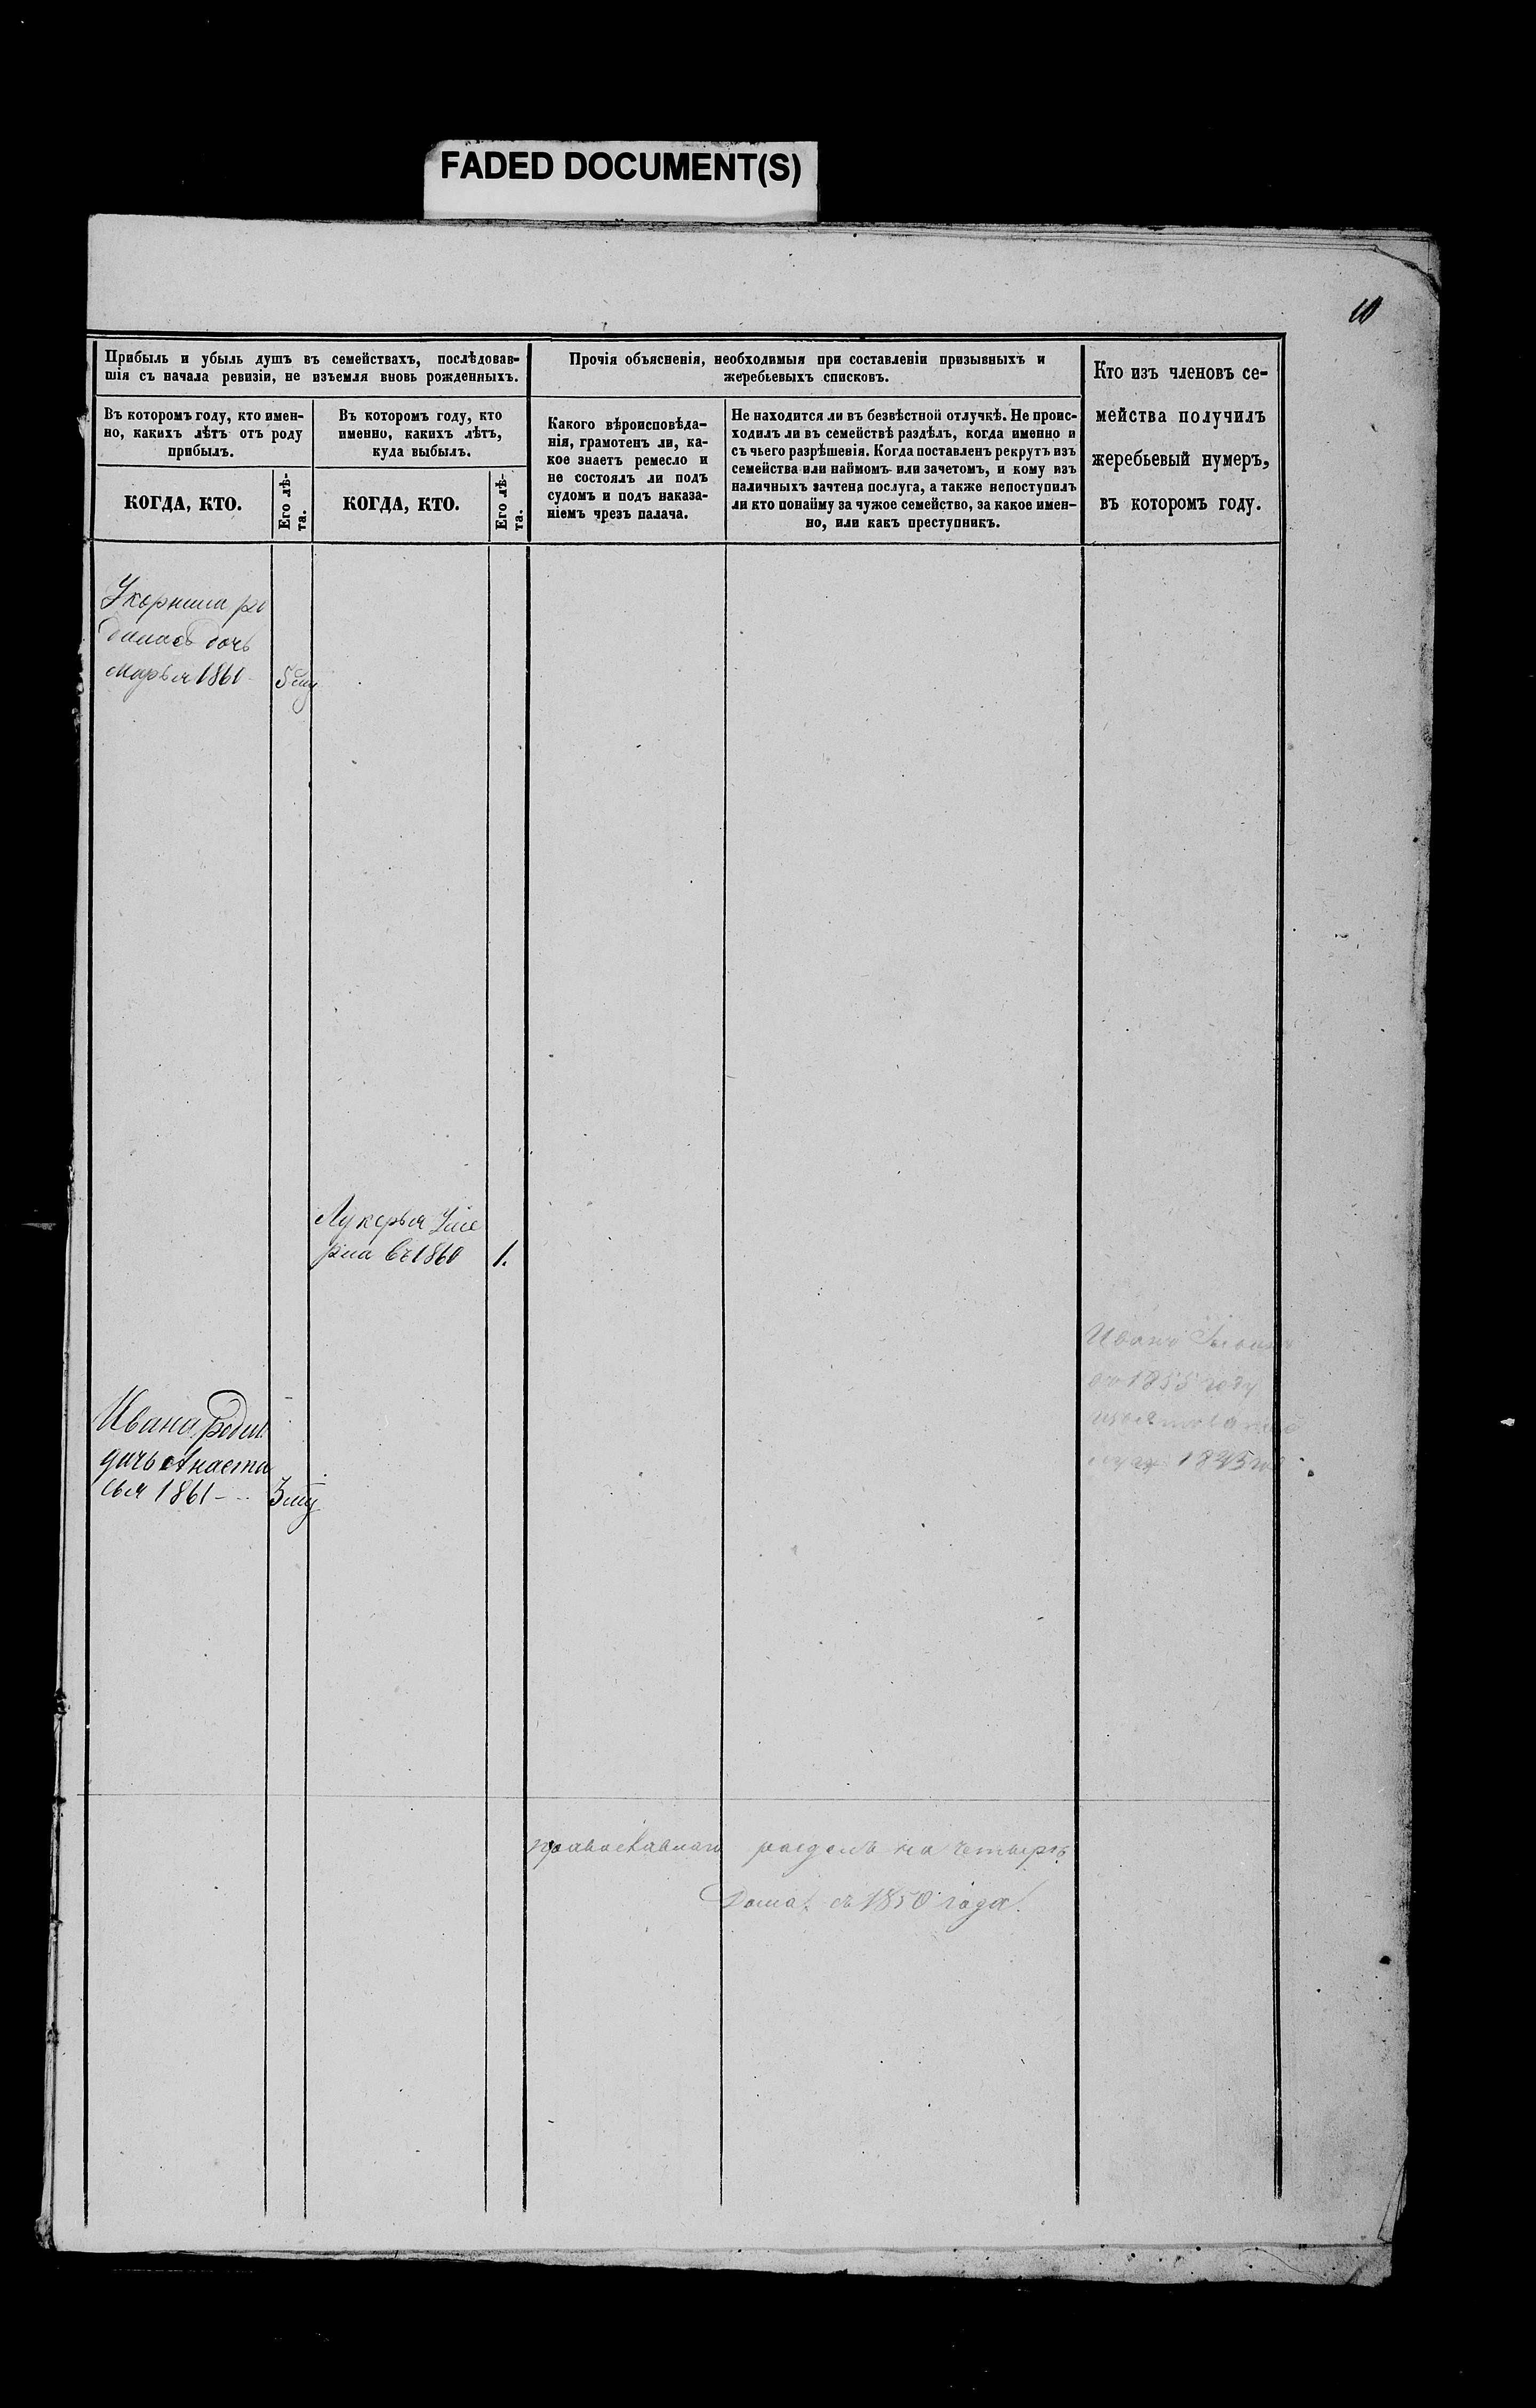 FADED DOCUMENT(S)
10
Прибыль и убыль душъ въ семействахъ, послѣдовав-
шія съ начала ревизіи, не изъемля вновь рожденныхъ.
Въ которомъ году, кто имен-
но, какихъ лѣтъ отъ роду
прибылъ.
КОГДА, КТО.
Его лѣ-
та.
Въ которомъ году, кто
именно, какихъ лѣтъ,
куда выбылъ.
КОГДА, КТО.
Его лѣ-
та.
Прочія объясненія, необходимыя при составленіи призывныхъ и
жеребьевыхъ списковъ.
Какого вѣроисповѣда-
нія, грамотенъ ли, ка-
кое знаетъ ремесло и
не состоялъ ли подъ
судомъ и подъ наказа-
ніемъ чрезъ палача.
Не находится ли въ безвѣстной отлучкѣ. Не проис-
ходилъ ли въ семействѣ раздѣлъ, когда именно и
съ чьего разрѣшенія. Когда поставленъ рекрутъ изъ
семейства или наймомъ или зачетомъ, и кому изъ
наличныхъ зачтена послуга, а также непоступилъ
ли кто понайму за чужое семейство, за какое имен-
но, или какъ преступникъ.
Кто изъ членовъ се-
мейства получилъ
жеребьевый нумеръ,
въ которомъ году.
Укорнила ро
дилась дочь
марья 1861
Лукерья Уме
рла въ 1860
1.
Ивана родил
дочь Анаста
сья 1861
Иванъ
1855 году
православнаго
раздѣлъ на четыре
Дома съ 1850 года.